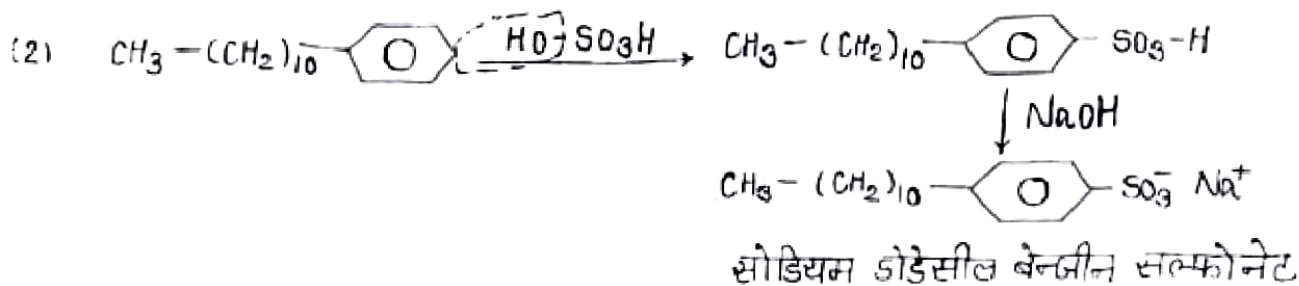 (2) CH₃-(CH₂)₁₀- HO-SO₃H CH₃-(CH₂)₁₀- SO₃-H
NaOH
CH₃-(CH₂)₁₀- SO₃⁻ Na⁺
सोडियम डोडेसील बेन्जीन सल्फोनेट